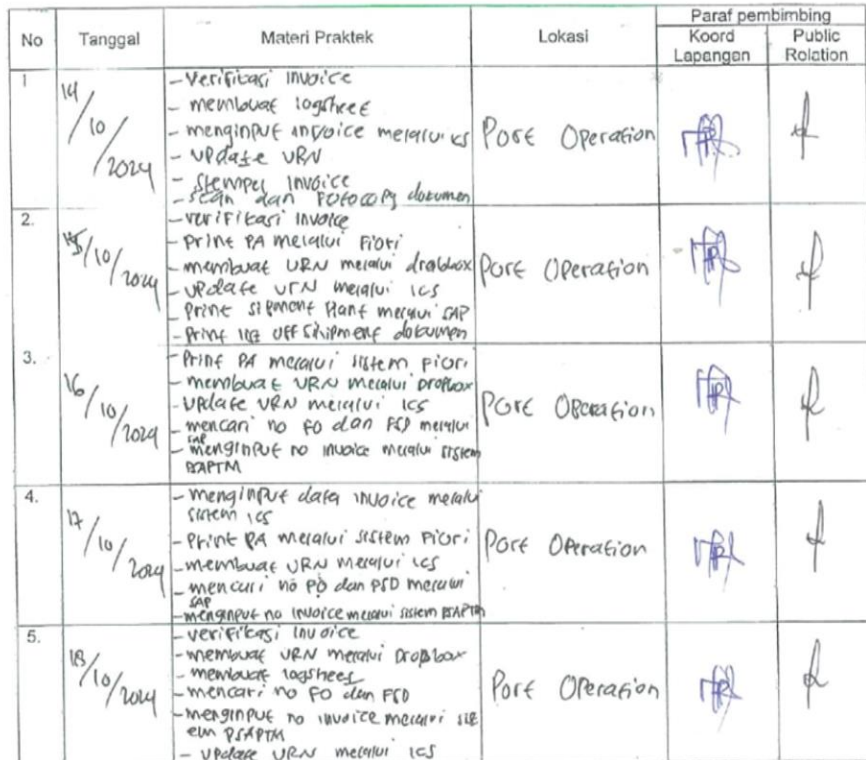 No Tanggal Materi Praktek Lokasi Paraf pembimbing
Koord Lapangan Public Rolation
1 14/10/2024
- Verifikasi invoice
- membuat logsheet
- menginput invoice melalui ICS
- update URN
- Stempel Invoice
- scan dan Fotocopy dokumen
Port Operation
2. 15/10/2024
- verifikasi invoice
- print PA melalui Fiori
- membuat URN melalui dropbox
- update URN melalui ICS
- Print melalui SAP
- Print dokumen
Port Operation
3. 16/10/2024
- Print PA melalui sistem Fiori
- membuat URN melalui Dropbox
- Update URN melalui ICS
- mencari no PO dan PSD melalui
SAP
- menginput no invoice melalui sistem
PSAPTM
Port Operation
4. 17/10/2024
- menginput data invoice melalui
sistem ICS
- Print PA melalui sistem Fiori
- membuat URN melalui ICS
- mencari no PO dan PSD melalui
SAP
- menginput no invoice melalui sistem PSAPTM
Port Operation
5. 18/10/2024
- verifikasi invoice
- membuat URN melalui Dropbox
- membuat logsheet
- mencari no PO dan PSD
- menginput no invoice melalui sist
em PSAPTM
- update URN melalui ICS
Port Operation